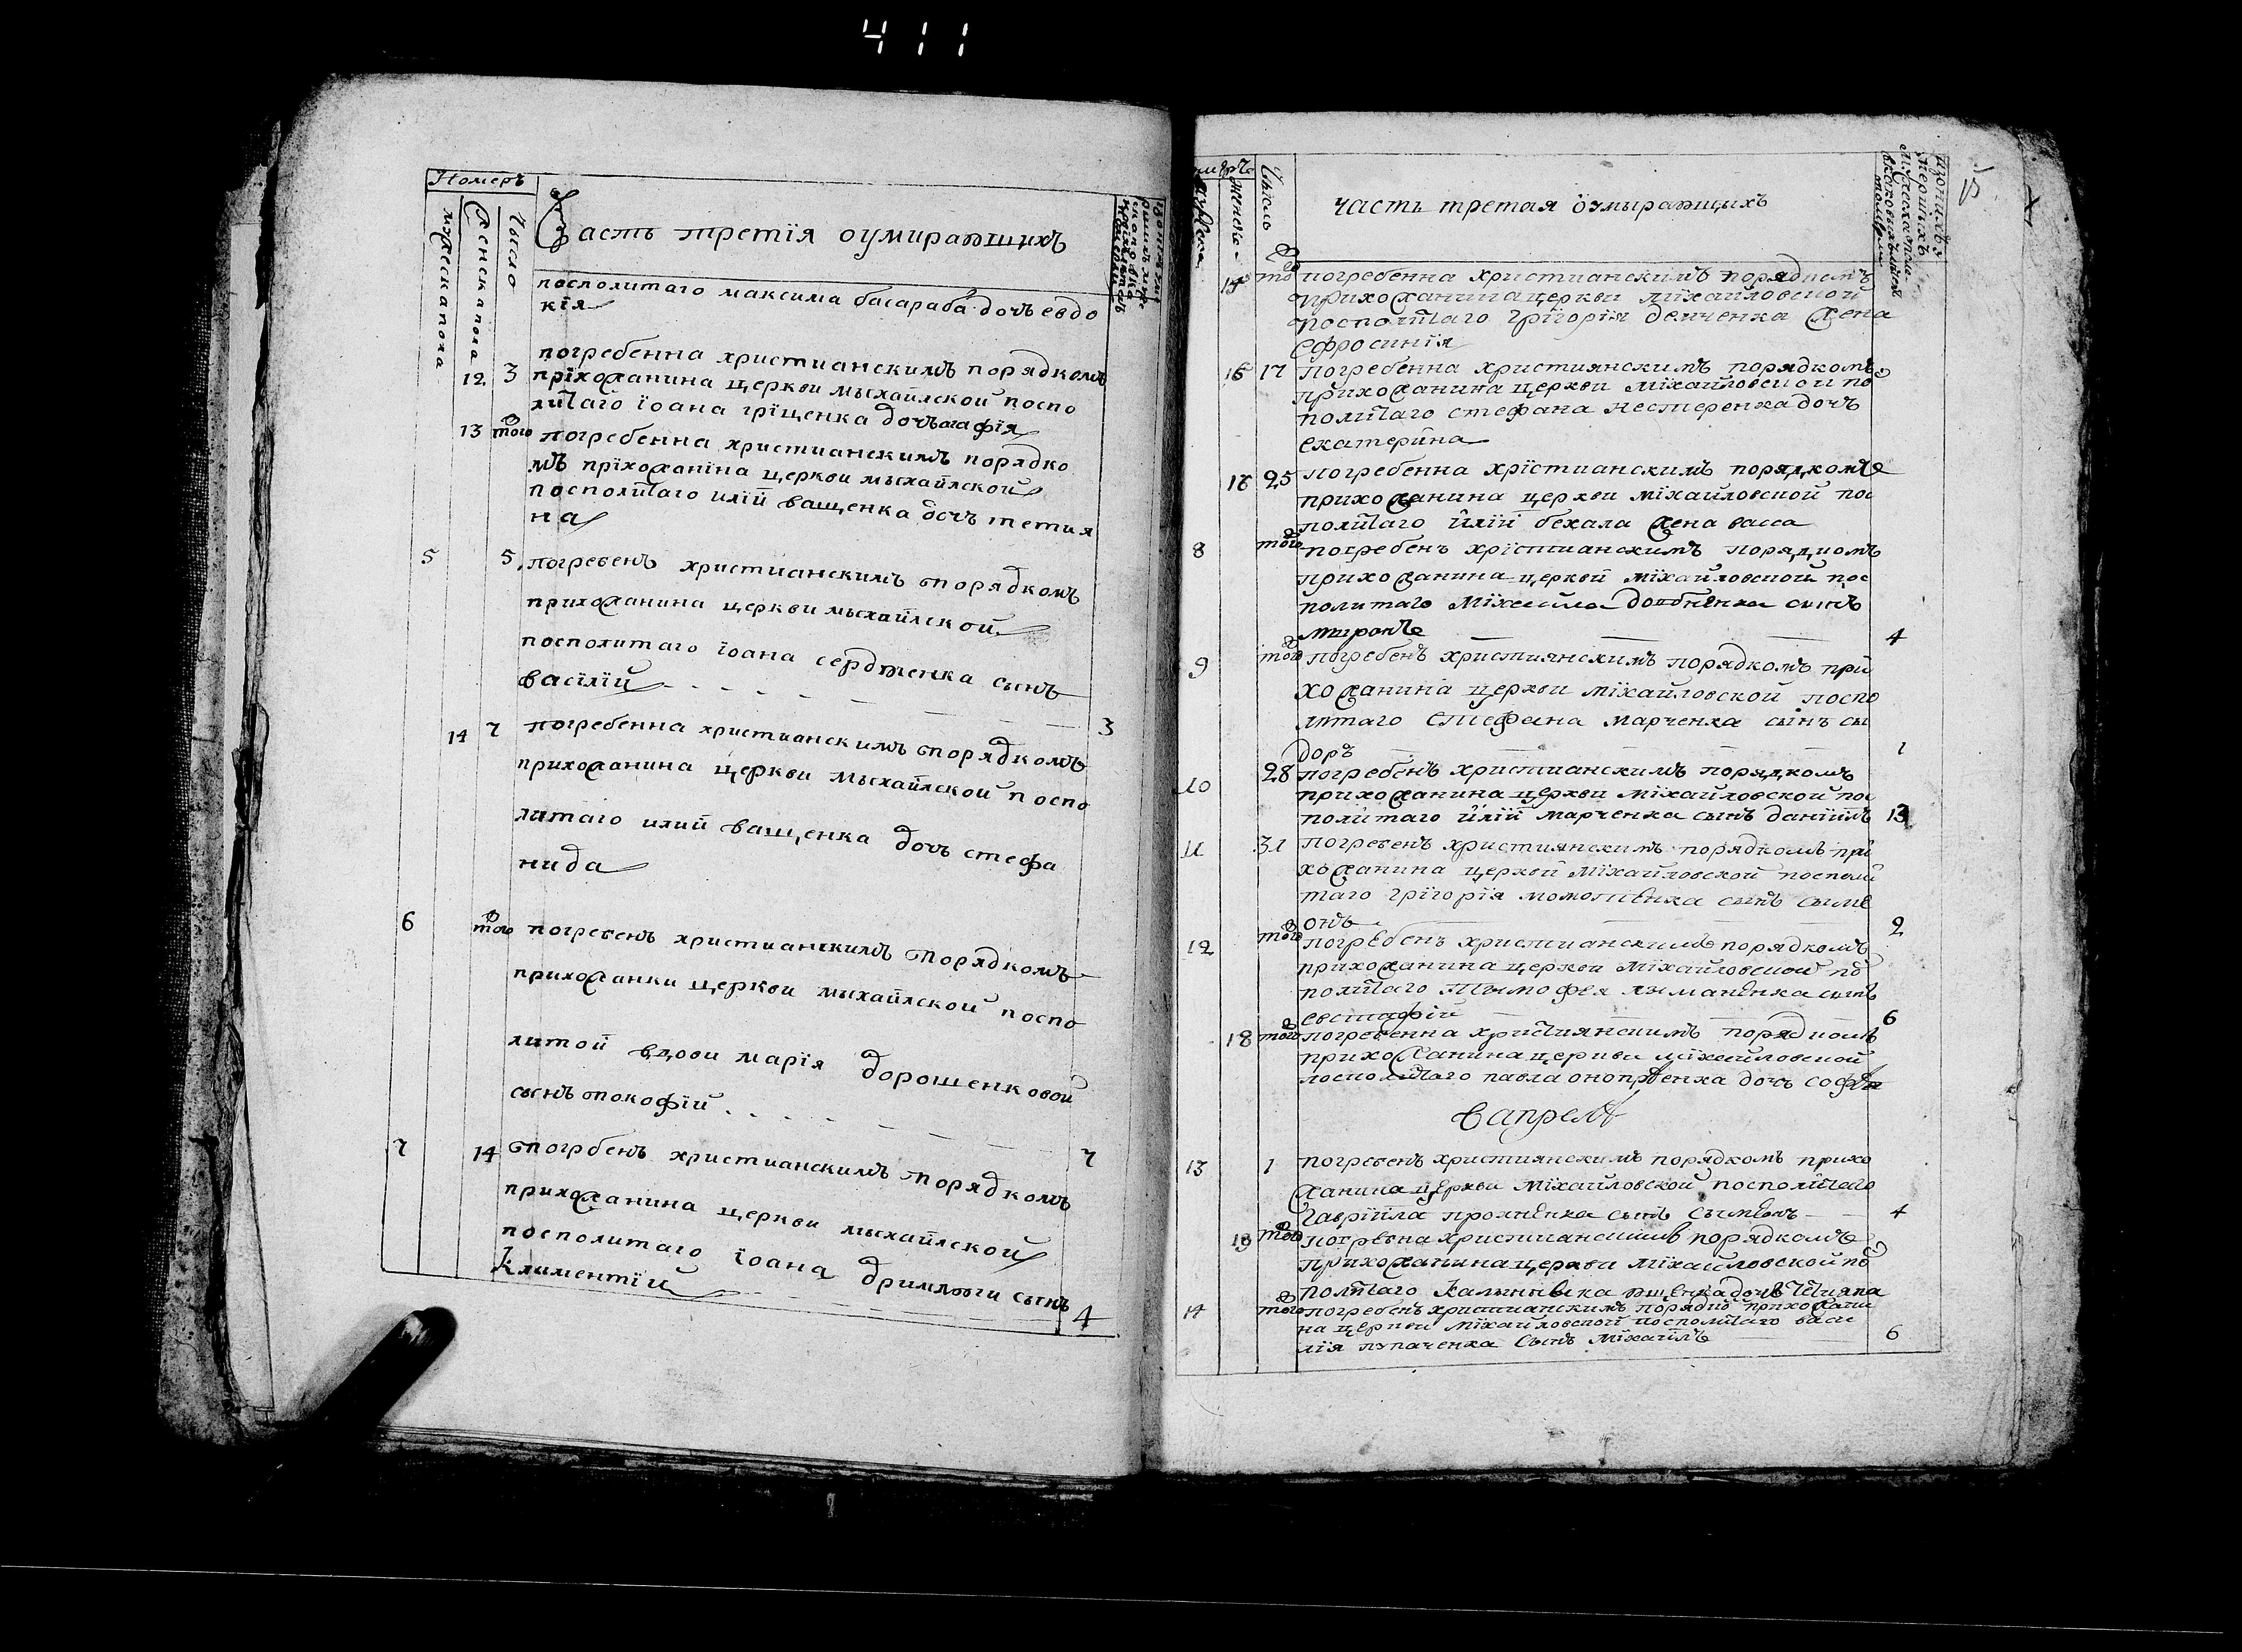 411
Номеръ
мужеска пола
Женска пола
Число
Часть третїя оумирающихъ
посполитаго максима басараба дочъ евдо
кїя
погребенна христианскимъ порядкомъ
12 3 прїхожанина церкви мыхайлской поспо
литаго їоана грїценка дочъ агафїя
13 того погребенна христианскимъ порядко
мъ прїхожанїна церкви мыхайлской
посполитаго илїй ващенка дочъ тетия
на
5 5 погребенъ христианскимъ порядкомъ
прихожанина церкви мыхайлской
посполитаго їоана сердюченка сынъ
василїй 3
14 7 погребенна христианскимъ порядкомъ
прихожанина церкви мыхайлской поспо
литаго илий ващенка дочъ стефа
нида
6 того погребенъ христианскимъ порядкомъ
прихожанки церкви мыхайлской поспо
литой вдови марїя дорошенковой
сынъ покофїй 7
7 14 погрбенъ христианскимъ порядкомъ
прихожанина церкви мыхайлской
посполитаго їоана сынъ
Климентїй 4
15
женска
Число
часть третая оумырающыхъ
15 того погребенна христианскимъ порядкомъ
прихожанина церкви мїхайловской
посполитаго Грїгорїя демченка жена
Ефросинїя
16 17 погребенна християнскимъ порядкомъ
прихожанина церкви мїхайловской по
политаго стефана нестеренка дочъ
екатерина
17 25 погребенна хрїстианскимъ порядкомъ
прихожанина церкви мїхайловской пос
политаго їлїй бехала жена васса
8 того погребенъ хрїстианскимъ порядкомъ
прихожанина церкви мїхайловской пос
политаго Мїхаила сынъ
миронъ 4
9 того погребенъ християнскимъ порядкомъ при
хожанина церкви мїхайловской поспо
литаго стефана марченка сынъ си
доръ 1
10 28 погребенъ христианскимъ порядкомъ
прихожанина церкви мїхайловской пос
политаго їлїй марченка сынъ данїилъ 13
11 31 погребенъ християнскимъ порядкомъ при
хожанина церкви мїхайловской посполи
таго грїгорїя сынъ сыме
онъ 2
12 того погребенъ христианскимъ порядкомъ
прихожанина церкви мїхайловской по
политаго Тымофея лыманенка сынъ
евстафїй 6
18 того погребенна християнскимъ порядкомъ
прихожанина церкви мїхайловской
посполитаго павла оноприенка дочъ софия
Въ апрелѣ
13 1 погребенъ християнскимъ порядкомъ прихо
жанина церкви Мїхайловской посполитаго
Гаврїила сынъ Сымеонъ 4
19 того погребна христианскимъ порядкомъ
прихожанина церкви мїхайловской по
политаго дочъ Тетияна
14 того погребенъ христианскимъ порядко прихожани
на церкви мїхайловской посполитаго васи
лїя лупаченка сынъ мїхаилъ 6